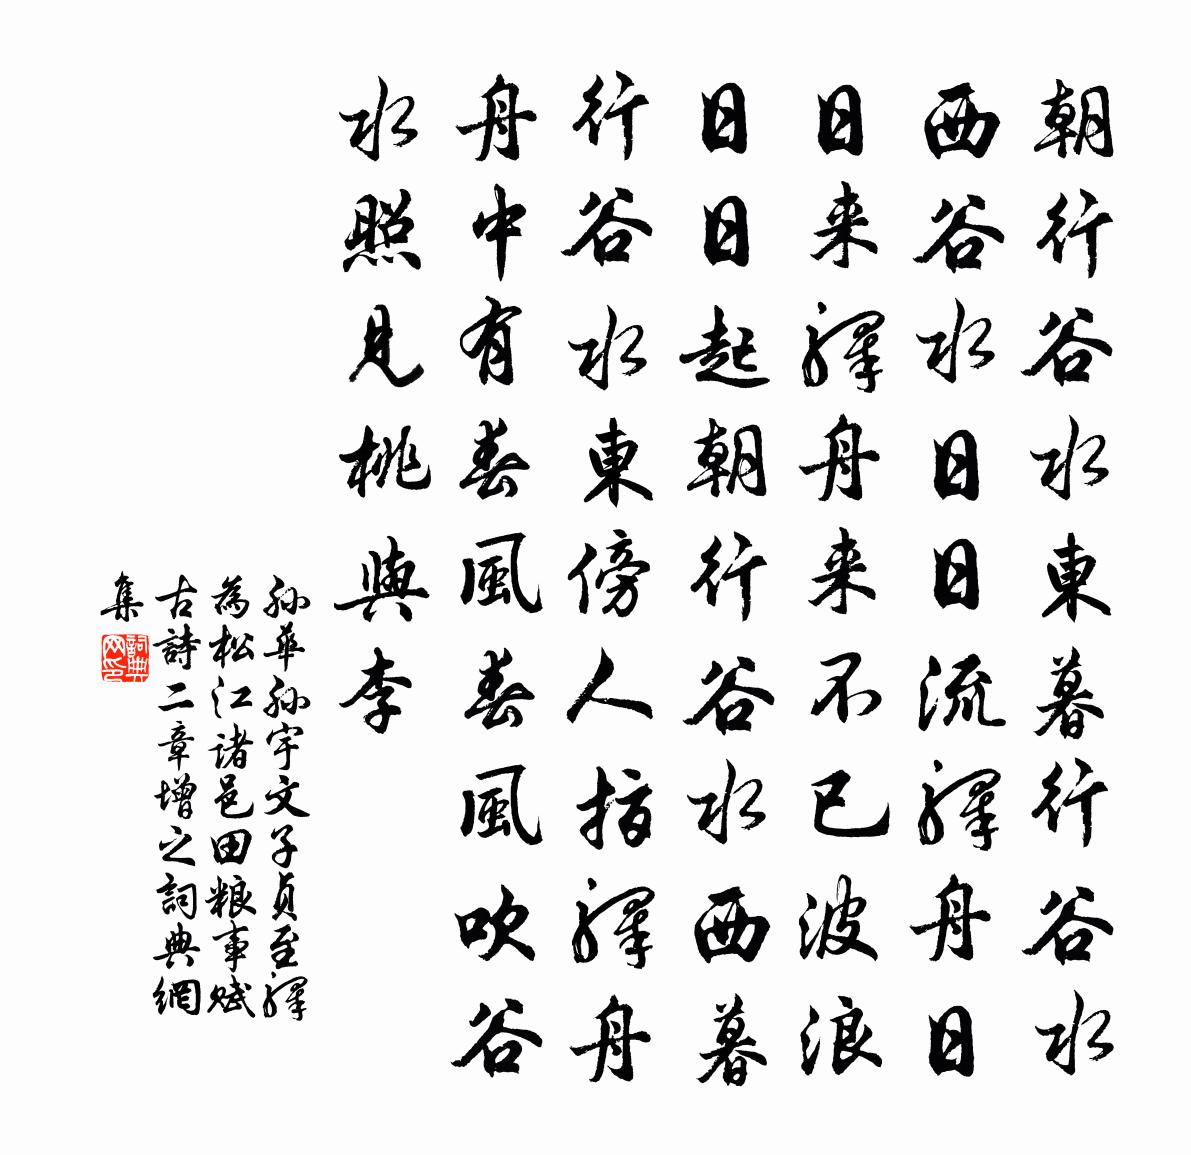 朝行谷水東暮行谷水
西谷水日日流驛舟日
日来驛舟来不已波浪
日日起朝行谷水西暮
行谷水東傍人指驛舟
舟中有春風春風吹谷
水照見桃與李
孫華孫宇文子貞至驛
為松江諸邑田粮事赋
古詩二章增之詞典網
集
詞典網印